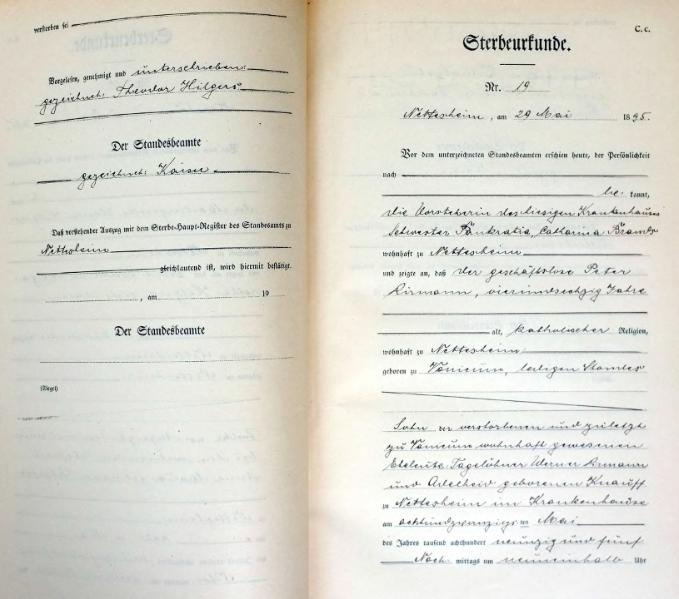 verstorben sei
Vorgelesen, genehmigt und unterschrieben:
gezeichnet: Theodor Hilgers
Der Standesbeamte
gezeichnet: Kaiser
Daß vorstehender Auszug mit dem Sterbe-Haupt-Register des Standesamts zu
Nettesheim
gleichlautend ist, wird hiermit bestätigt.
, am 19
Der Standesbeamte
(Siegel)
C. c.
Sterbeurkunde.
Nr. 19
Nettesheim, am 29 Mai 1895.
Vor dem unterzeichneten Standesbeamten erschien heute, der Persönlichkeit
nach
be kannt,
die Vorsteherin des hiesigen Krankenhauses
Schwester Pankratia, Catharina
wohnhaft zu Nettesheim
und zeigte an, daß der geschäftslose Peter
vierundsechzig Jahre
alt, katholischer Religion,
wohnhaft zu Nettesheim
geboren zu Vanicum, ledigen Standes
Sohn der verstorbenen und zuletzt
zu Vanicum wohnhaft gewesenen
Eheleute Tagelöhner Werner
und Adelheid geborenen Knauff
zu Nettesheim im Krankenhause
am achtundzwanzigs ten Mai
des Jahres tausend achthundert neunzig und fünf
Nach mittags um neuneinhalb Uhr